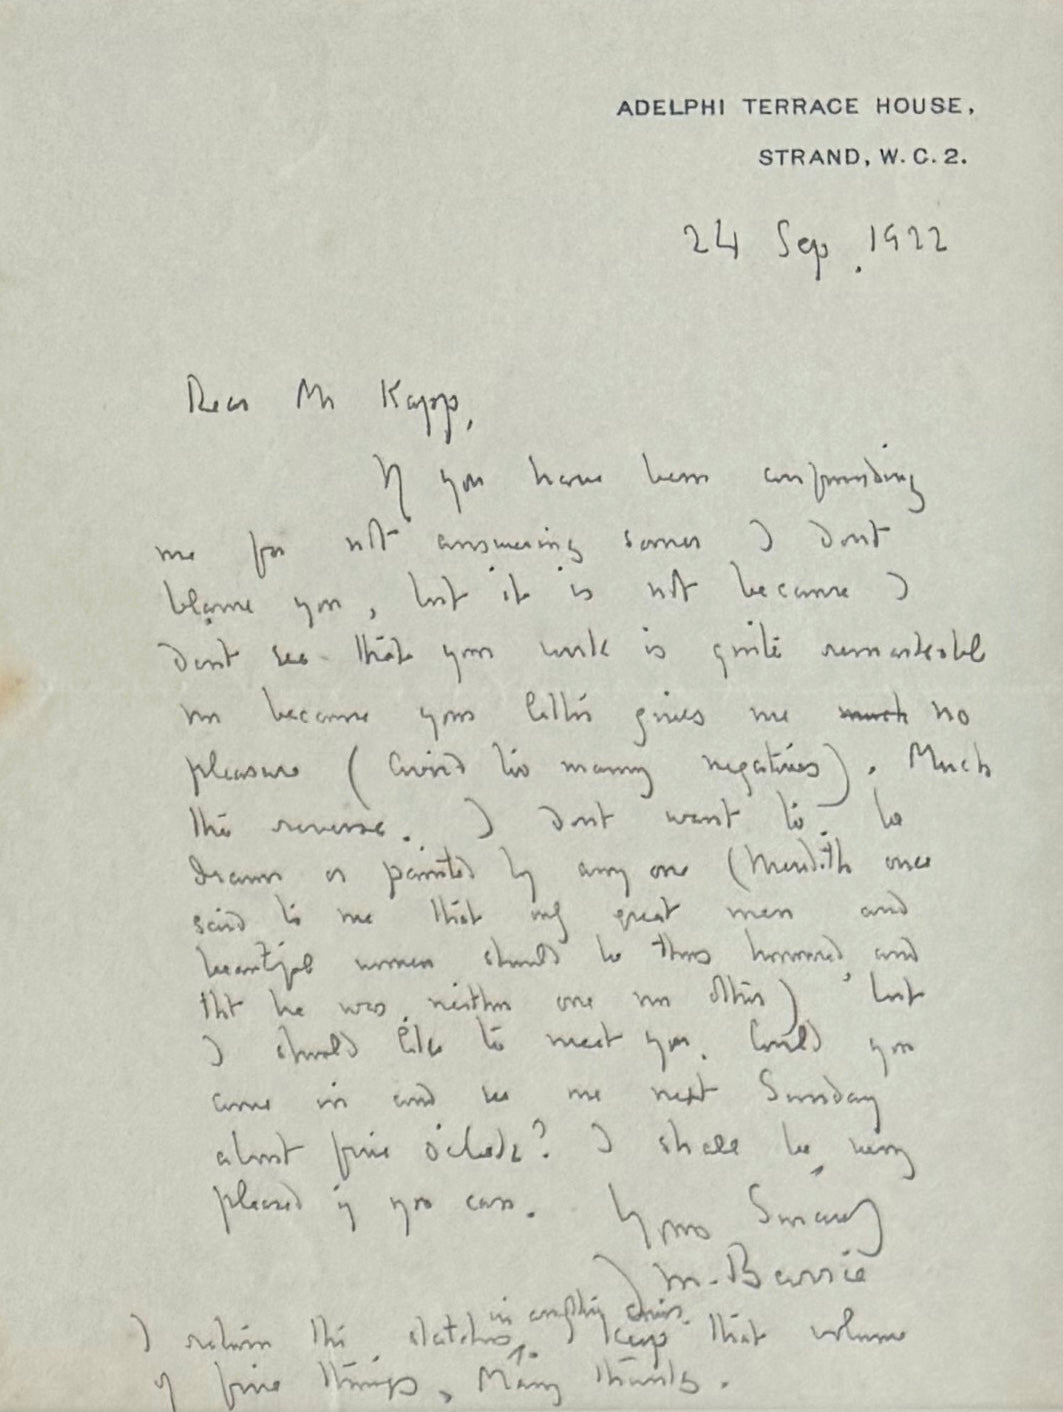 ADELPHI TERRACE HOUSE,
STRAND, W.C.2.
24 Sep. 1922
Dear Mr Kapp,
If you have been confounding
me for not answering sooner I dont
blame you, but it is not because I
dont see that your work is quite remarkable
nor because your letter gives me much no
pleasure (Avoid too many negatives). Much
the reverse. I dont want to be
drawn or painted by any one (Meredith once
said to me that only great men and
beautiful women should be thus honoured, and
tht he was neither one nor other) but
I should like to meet you. Could you
come in and see me next Sunday
about five o'clock? I shall be very
pleased if you can. Yours Sincerely
J M. Barrie
in another cover.
I return the sketches. Keep that volume
of fine things, Many thanks.